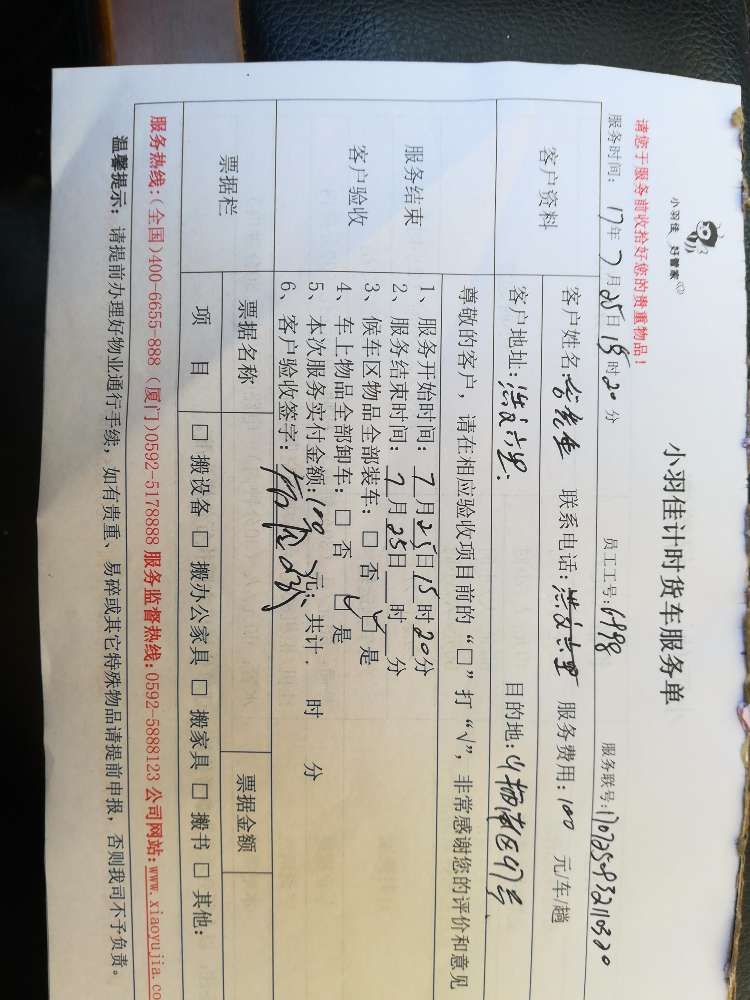 小羽佳 好管家
小羽佳计时货车服务单
请您于服务前收拾好您的贵重物品!
员工工号:6998
服务联号:
服务时间: 17年 7月25日 15时20分
客户资料
客户姓名: 联系电话:洪文六里 服务费用:100 元/车/趟
客户地址:洪文六里. 目的地:
尊敬的客户,请在相应验收项目前的“□”打“√”,非常感谢您的评价和意见
服务结束
客户验收
1、服务开始时间: 7月25日15时20分
2、服务结束时间: 7月25日 时 分
3、候车区物品全部装车: □ 否 ☑ 是
4、车上物品全部卸车: □ 否 ☑ 是
5、本次服务实付金额:100 元; 共计. 时 分
6、客户验收签字:
票据栏
票据名称 票据金额
项 目 □ 搬设备 □ 搬办公家具 □ 搬家具 □ 搬书 □ 其他:
服务热线:(全国)400-6655-888 (厦门)0592-5178888 服务监督热线:0592-5888123 公司网站:www.xiaoyujia.co
温馨提示: 请提前办理好物业通行手续,如有贵重、易碎或其它特殊物品请提前申报,否则我司不予负责。